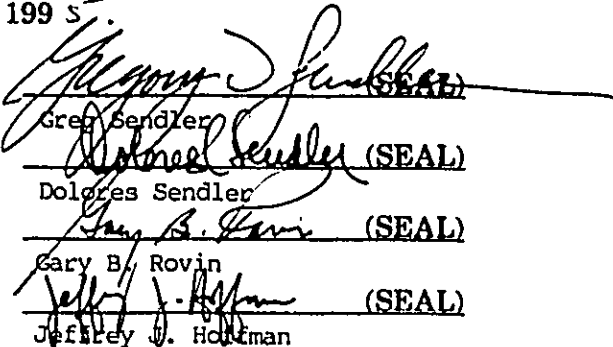 199 5.
Gregory J Sendler (SEAL)
Greg Sendler
Dolores Sendler (SEAL)
Dolores Sendler
Gary B. Rovin (SEAL)
Gary B. Rovin
Jeffrey J. Hoffman (SEAL)
Jeffrey J. Hoffman